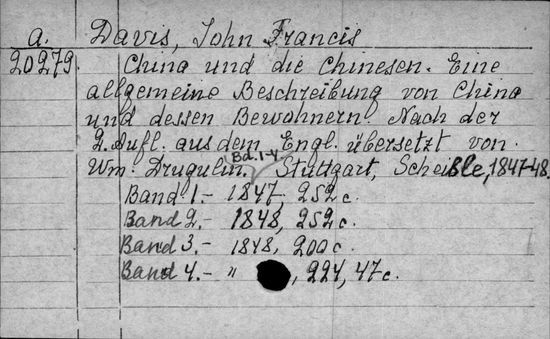 a. Davis, John Francis
20279. China und die Chinesen. Eine
allgemeine Beschreibung von China
und dessen Bewohnern. Nach der
2. Aufl. aus dem Engl. übersetzt von
Bd. 1-4
Wm. Drugulin. Stuttgart, Scheible, 1847-48.
Band 1.- 1847, 252 c.
Band 2.- 1848, 252 c.
Band 3.- 1848, 200 c.
Band 4.- " , 224, 47 c.